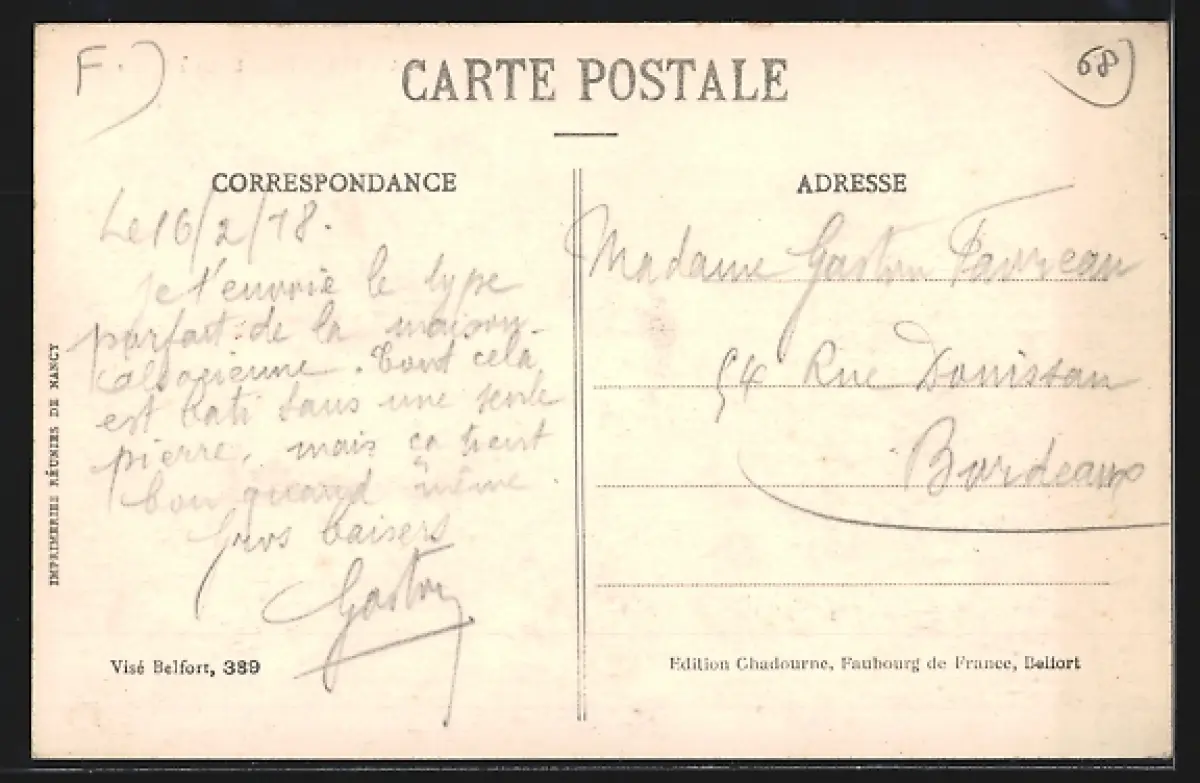 F.
68
CARTE POSTALE
CORRESPONDANCE
Le 16/2/18.
Je t'envoie le type
parfait de la maison
alsacienne. Tout cela
est bati sans une seule
pierre, mais ça tient
bon quand même
Gros baisers
Gaston
Visé Belfort, 389
IMPRIMERIES RÉUNIES DE NANCY
ADRESSE
Madame Gaston Favreau
54 Rue Donissan
Bordeaux
Edition Chadourne, Faubourg de France, Belfort